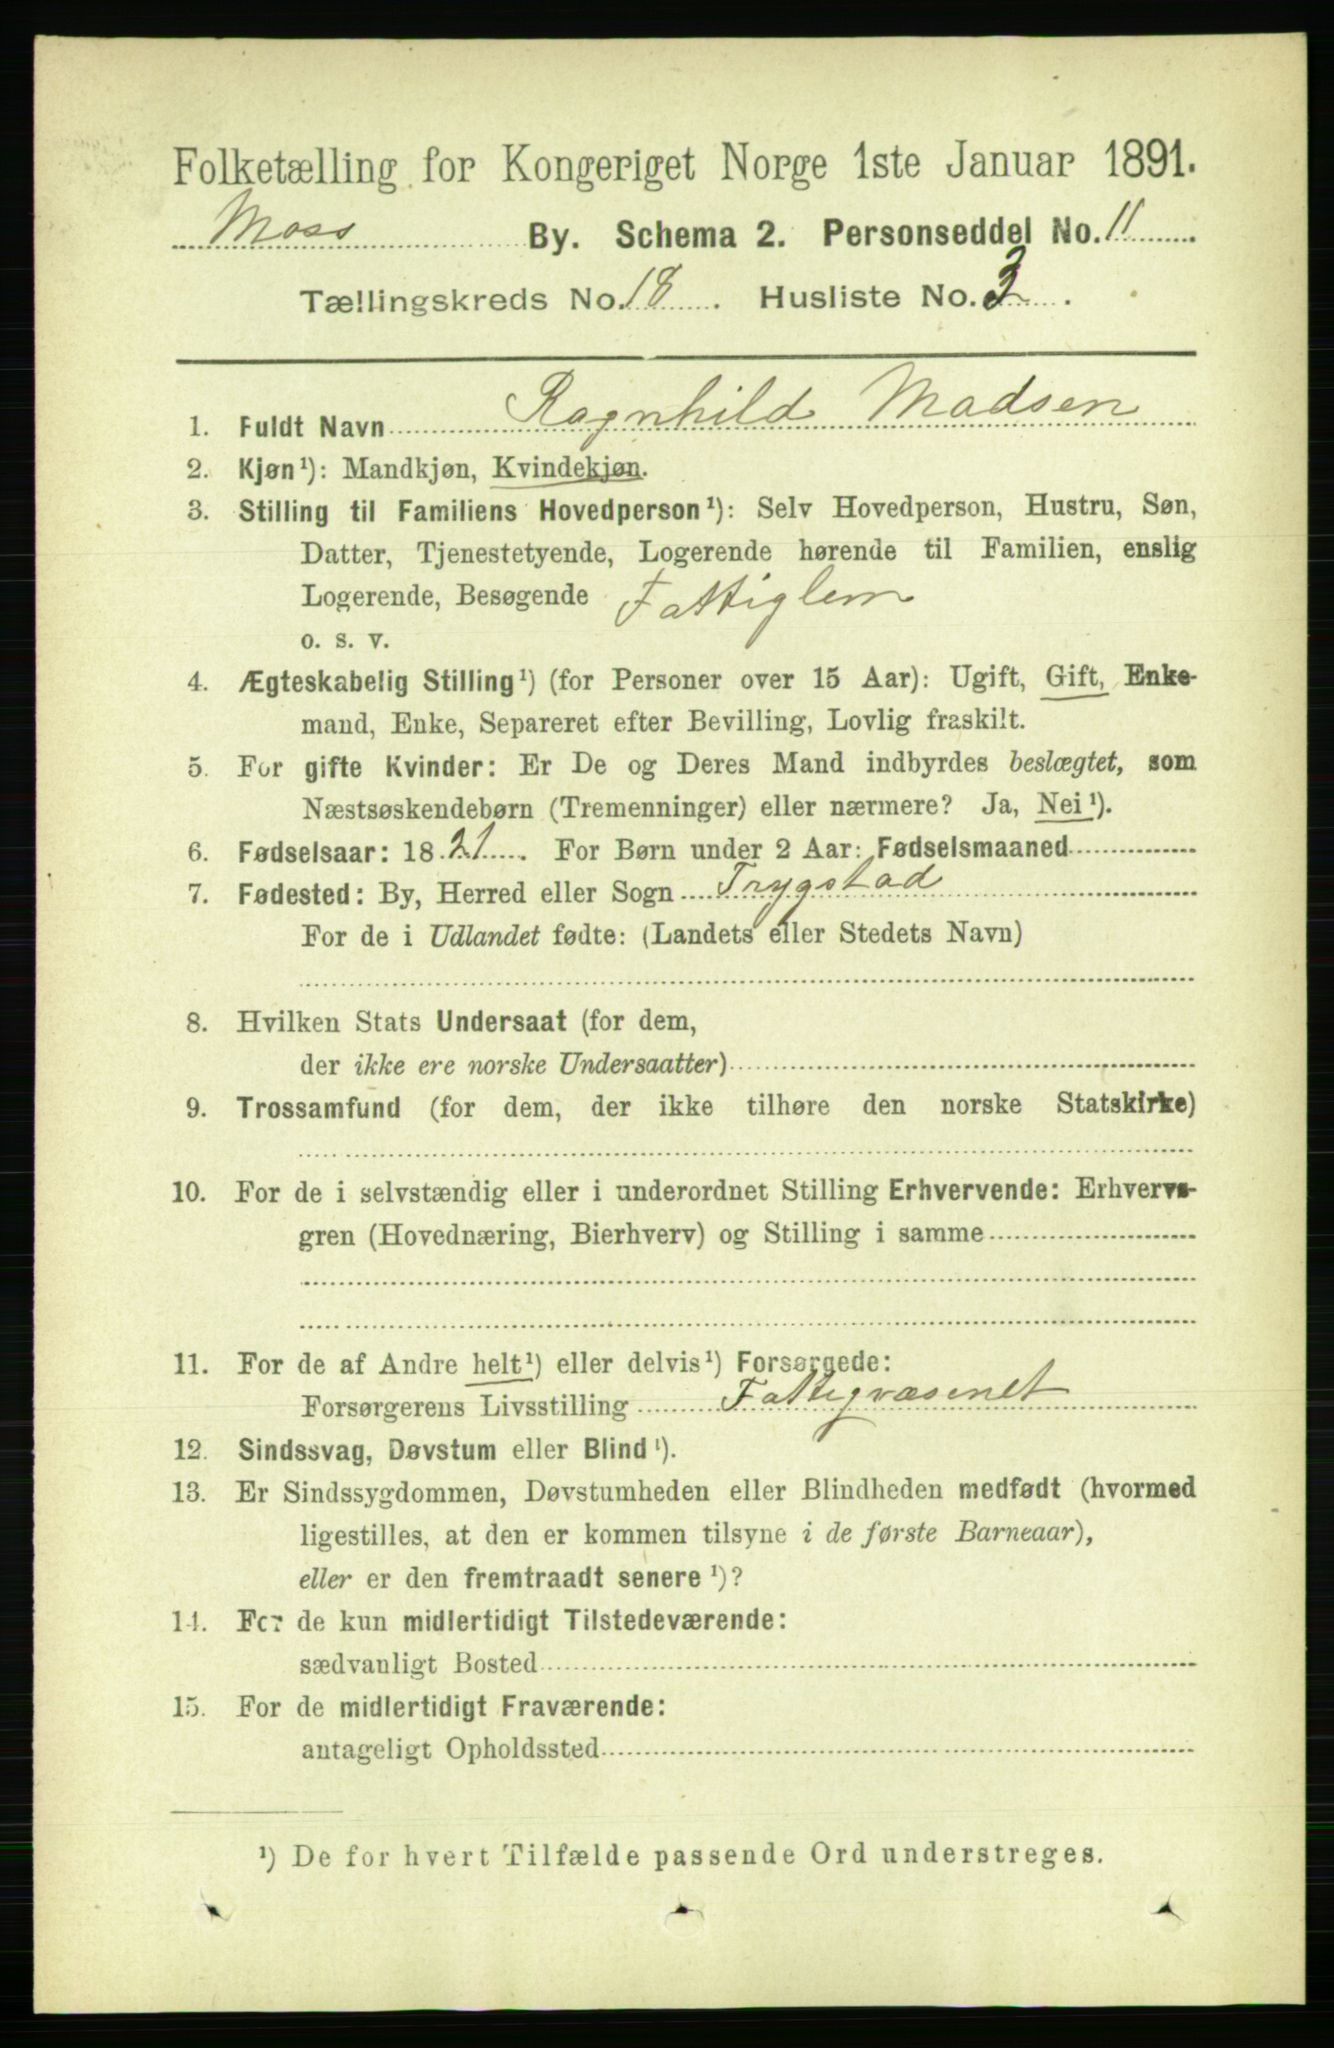 Folketælling for Kongeriget Norge 1ste Januar 1891.
Moss By. Schema 2. Personseddel No. 11
Tællingskreds No. 18. Husliste No. 3.
1. Fuldt Navn Ragnhild Madsen
2. Kjøn¹): Mandkjøn, Kvindekjøn.
3. Stilling til Familiens Hovedperson¹): Selv Hovedperson, Hustru, Søn,
Datter, Tjenestetyende, Logerende hørende til Familien, enslig
Logerende, Besøgende Fattiglem
o. s. v.
4. Ægteskabelig Stilling¹) (for Personer over 15 Aar): Ugift, Gift, Enke-
mand, Enke, Separeret efter Bevilling, Lovlig fraskilt.
5. For gifte Kvinder: Er De og Deres Mand indbyrdes beslægtet, som
Næstsøskendebørn (Tremenninger) eller nærmere? Ja, Nei¹).
6. Fødselsaar: 1821. For Børn under 2 Aar: Fødselsmaaned
7. Fødested: By, Herred eller Sogn Trygstad
For de i Udlandet fødte: (Landets eller Stedets Navn)
8. Hvilken Stats Undersaat (for dem,
der ikke ere norske Undersaatter)
9. Trossamfund (for dem, der ikke tilhøre den norske Statskirke)
10. For de i selvstændig eller i underordnet Stilling Erhvervende: Erhvervs-
gren (Hovednæring, Bierhverv) og Stilling i samme
11. For de af Andre helt¹) eller delvis¹) Forsørgede:
Forsørgerens Livsstilling Fattigvæsenet
12. Sindssvag, Døvstum eller Blind¹).
13. Er Sindssygdommen, Døvstumheden eller Blindheden medfødt (hvormed
ligestilles, at den er kommen tilsyne i de første Barneaar),
eller er den fremtraadt senere¹)?
14. For de kun midlertidigt Tilstedeværende:
sædvanligt Bosted
15. For de midlertidigt Fraværende:
antageligt Opholdssted
¹) De for hvert Tilfælde passende Ord understreges.